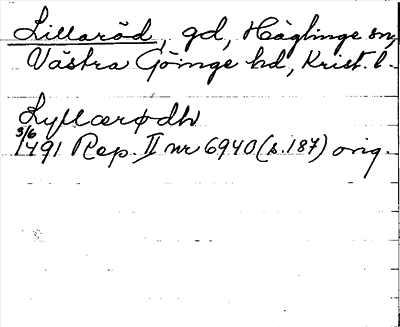 Lillaröd, gd, Häglinge sn,
Västra Göinge hd, Krist. l.
Lyllærødh
3/6
1491 Rep. II nr 6940 (s. 187) orig.